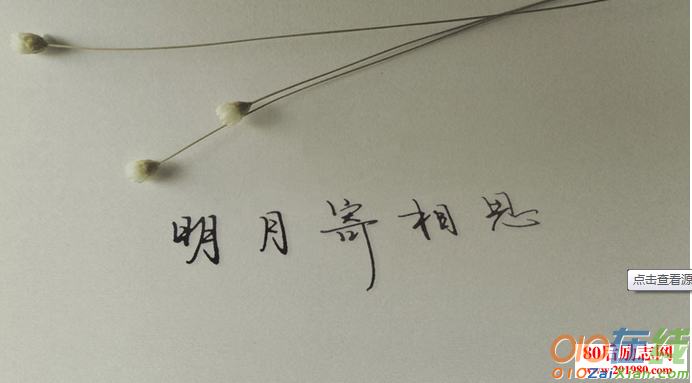 明月寄相思
点击查看源
010在线
80后励志网
010ZaiXian.com
www.201980.com